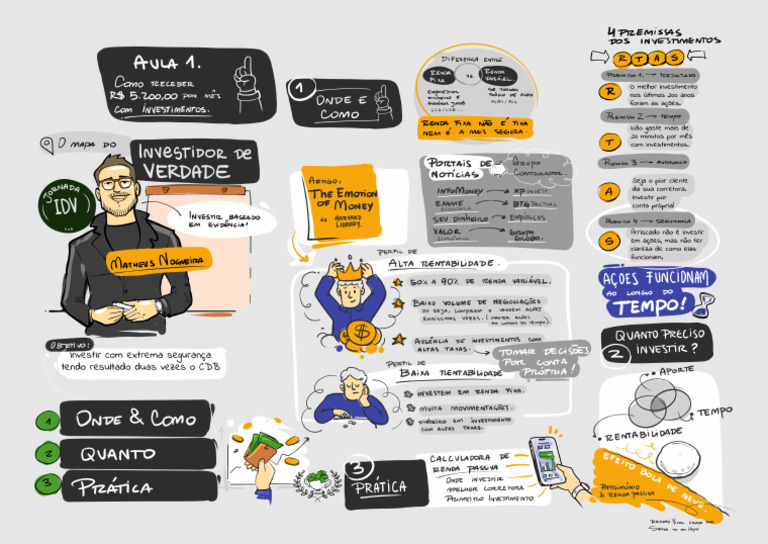 AULA 1.
COMO RECEBER
R$ 5.200,00 POR MÊS
COM INVESTIMENTOS.
O MAPA DO
INVESTIDOR DE
VERDADE
JORNADA
IDV
INVESTIR BASEADO
EM EVIDÊNCIA!
MATHEUS NOGUEIRA
OBJETIVO:
Investir com extrema segurança
tendo resultado duas vezes o CDB
1 ONDE & COMO
2 QUANTO
3 PRÁTICA
1
ONDE E
COMO
DIFERENÇA ENTRE
RENDA
FIXA
VS.
RENDA
VARIÁVEL.
RENDA FIXA NÃO É FIXA
NEM É A MAIS SEGURA.
ARTIGO:
THE EMOTION
OF MONEY
HARVARD
LIBRARY.
PORTAIS DE
NOTÍCIAS
GRUPO
CONTROLADOR.
INFOMONEY → XP INVEST
EXAME → BTG PACTUAL
SEU DINHEIRO → EMPIRICUS
VALOR ECONÔMICO → GRUPO GLOBO.
PERFIL DE
ALTA RENTABILIDADE.
50% A 90% DE RENDA VARIÁVEL.
BAIXO VOLUME DE NEGOCIAÇÕES
OU SEJA, COMPRAM E VENDEM AÇÕES
RARÍSSIMAS VEZES. (MANTER AÇÕES
AO LONGO DO TEMPO).
AUSÊNCIA DE INVESTIMENTOS COM
ALTAS TAXAS.
TOMAR DECISÕES
POR CONTA
PRÓPRIA!
PERFIL DE
BAIXA RENTABILIDADE
INVESTEM EM RENDA FIXA.
MUITA MOVIMENTAÇÕES.
DINHEIRO EM INVESTIMENTO
COM ALTAS TAXAS.
3
PRÁTICA
CALCULADORA DE
RENDA PASSIVA
ONDE INVESTIR
MELHOR CORRETORA
PRIMEIRO INVESTIMENTO
4 PREMISSAS
DOS INVESTIMENTOS
R T A S
PREMISSA 1. → RESULTADO
R
O melhor investimento
nos últimos 200 anos
foram as ações.
PREMISSA 2 → TEMPO
T
Não gaste mais de
20 minutos por mês
com investimentos.
PREMISSA 3 → AUTONOMIA
A
Seja o pior cliente
da sua corretora.
Investir por
conta própria!
PREMISSA 4 → SEGURANÇA
S
Arriscado não é investir
em ações, mas não ter
clareza de como elas
funcionam.
AÇÕES FUNCIONAM
AO LONGO DO
TEMPO!
2
QUANTO PRECISO
INVESTIR?
APORTE
TEMPO
RENTABILIDADE
EFEITO BOLA DE NEVE.
PATRIMÔNIO
& RENDA PASSIVA